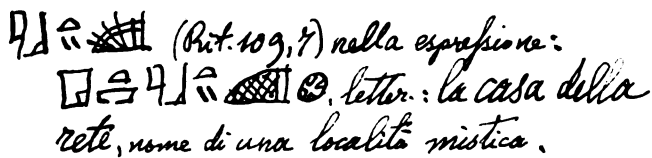 (Rit. 109, 7) nella espreſsione:
letter.: la casa della
rete, nome di una località mistica.